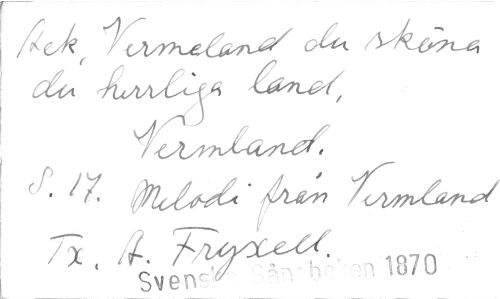 Ack, Vermeland du sköna
du herrliga land,
Vermland.
S. 17. Melodi från Vermland
Tx. A. Fryxell.
Svenska Sångboken 1870